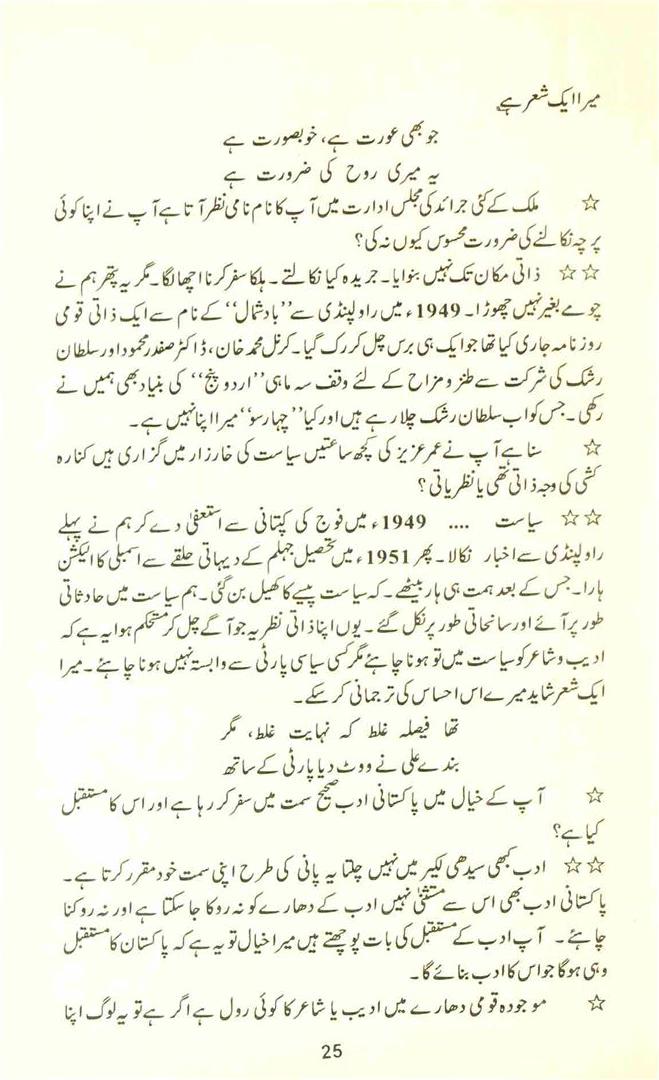 میرا ایک شعر ہے
جو بھی عورت ہے، خوبصورت ہے
یہ میری روح کی ضرورت ہے
☆ ملک کے کئی جرائد کی مجلس ادارت میں آپ کا نام نامی نظر آتا ہے آپ نے اپنا کوئی
پرچہ نکالنے کی ضرورت محسوس کیوں نہ کی؟
☆☆ ذاتی مکان تک نہیں بنوایا۔ جریدہ کیا نکالتے۔ ہلکا سفر کرنا اچھا لگا۔ مگر یہ پتھر ہم نے
چومے بغیر نہیں چھوڑا۔ 1949ء میں راولپنڈی سے ’’بادشمال‘‘ کے نام سے ایک ذاتی قومی
روزنامہ جاری کیا تھا جو ایک ہی برس چل کر رک گیا۔ کرنل محمد خان، ڈاکٹر صفدر محمود اور سلطان
رشک کی شرکت سے طنز و مزاح کے لئے وقف سہ ماہی ’’اردو پنچ‘‘ کی بنیاد بھی ہمیں نے
رکھی۔ جس کو اب سلطان رشک چلا رہے ہیں اور کیا ’’چہارسو‘‘ میرا اپنا نہیں ہے۔
☆ سنا ہے آپ نے عمر عزیز کی کچھ ساعتیں سیاست کی خارزار میں گزاری ہیں کنارہ
کشی کی وجہ ذاتی تھی یا نظریاتی؟
☆☆ سیاست .... 1949ء میں فوج کی کپتانی سے استعفیٰ دے کر ہم نے پہلے
راولپنڈی سے اخبار نکالا۔ پھر 1951ء میں تحصیل جہلم کے دیہاتی حلقے سے اسمبلی کا الیکشن
ہارا۔ جس کے بعد ہمت ہی ہار بیٹھے۔ کہ سیاست پیسے کا کھیل بن گئی۔ ہم سیاست میں حادثاتی
طور پر آئے اور سانحاتی طور پر نکل گئے۔ یوں اپنا ذاتی نظریہ جو آگے چل کر مستحکم ہوا یہ ہے کہ
ادیب و شاعر کو سیاست میں تو ہونا چاہئے مگر کسی سیاسی پارٹی سے وابستہ نہیں ہونا چاہئے۔ میرا
ایک شعر شاید میرے اس احساس کی ترجمانی کر سکے۔
تھا فیصلہ غلط کہ نہایت غلط، مگر
بندے علی نے ووٹ دیا پارٹی کے ساتھ
☆ آپ کے خیال میں پاکستانی ادب صحیح سمت میں سفر کر رہا ہے اور اس کا مستقبل
کیا ہے؟
☆☆ ادب کبھی سیدھی لکیر میں نہیں چلتا یہ پانی کی طرح اپنی سمت خود مقرر کرتا ہے۔
پاکستانی ادب بھی اس سے مستثنیٰ نہیں ادب کے دھارے کو نہ روکا جا سکتا ہے اور نہ روکنا
چاہئے۔ آپ ادب کے مستقبل کی بات پوچھتے ہیں میرا خیال تو یہ ہے کہ پاکستان کا مستقبل
وہی ہوگا جو اس کا ادب بنائے گا۔
☆ موجودہ قومی دھارے میں ادیب یا شاعر کا کوئی رول ہے اگر ہے تو یہ لوگ اپنا
25